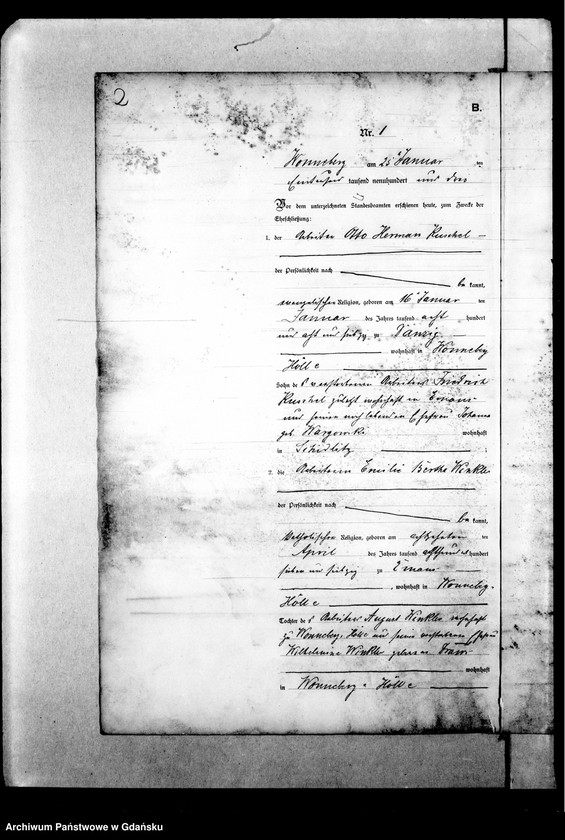 2
B.
Nr. 1
Wonneberg am 25 Januar
tausend neunhundert und drei
Vor dem unterzeichneten Standesbeamten erschienen heute, zum Zwecke der
Eheschließung:
1. der Arbeiter Otto Herman Kuschel
der Persönlichkeit nach
be kannt,
evangelischer Religion, geboren am 16 Januar
Januar des Jahres tausend acht hundert
und acht und siebzig zu Danzig
wohnhaft in Wonneberg
Hölle
Sohn des verstorbenen Arbeiters Friedrich
Kuschel zuletzt wohnhaft in
und seiner noch lebenden Ehefrau Johanna
geb. wohnhaft
in Schidlitz
2. die Arbeiterin Emilie Bertha Winkler
der Persönlichkeit nach
be kannt,
katholischer Religion, geboren am achtzehnten
April des Jahres tausend achthundert hundert
sieben und siebzig zu
, wohnhaft in Wonneberg-
Hölle
Tochter des Arbeiter August Winkler wohnhaft
zu Wonneberg-Hölle und seiner verstorbenen Ehefrau
Wilhelmine Winkler geborene
wohnhaft
in Wonneberg - Hölle
Archiwum Państwowe w Gdańsku